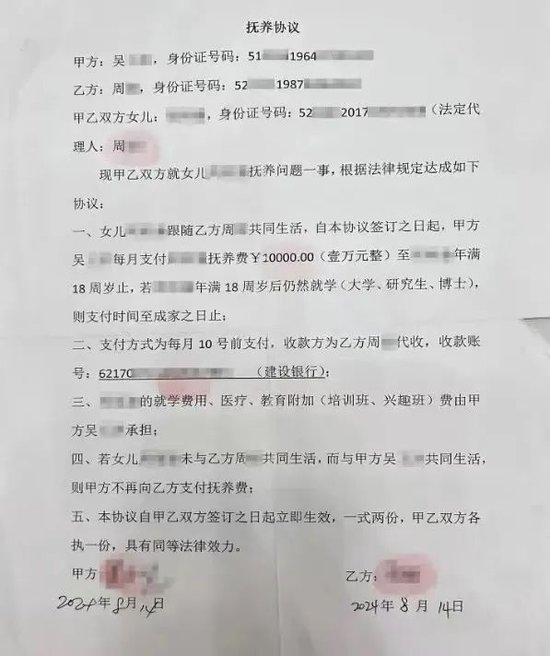 抚养协议
甲方：吴 ，身份证号码：51 1964
乙方：周 ，身份证号码：52 1987
甲乙双方女儿： ，身份证号码：52 2017 （法定代
理人：周
现甲乙双方就女儿 抚养问题一事，根据法律规定达成如下
协议：
一、女儿 跟随乙方周 共同生活，自本协议签订之日起，甲方
吴 每月支付 抚养费￥10000.00（壹万元整）至 年满
18周岁止，若 年满18周岁后仍然就学（大学、研究生、博士），
则支付时间至成家之日止；
二、支付方式为每月10号前支付，收款方为乙方周 代收，收款账
号：62170 （建设银行）；
三、 的就学费用、医疗、教育附加（培训班、兴趣班）费由甲
方吴 承担；
四、若女儿 未与乙方周 共同生活，而与甲方吴 共同生活，
则甲方不再向乙方支付抚养费；
五、本协议自甲乙双方签订之日起立即生效，一式两份，甲乙双方各
执一份，具有同等法律效力。
甲方： 乙方：
2024年8月14日 2024年8月14日